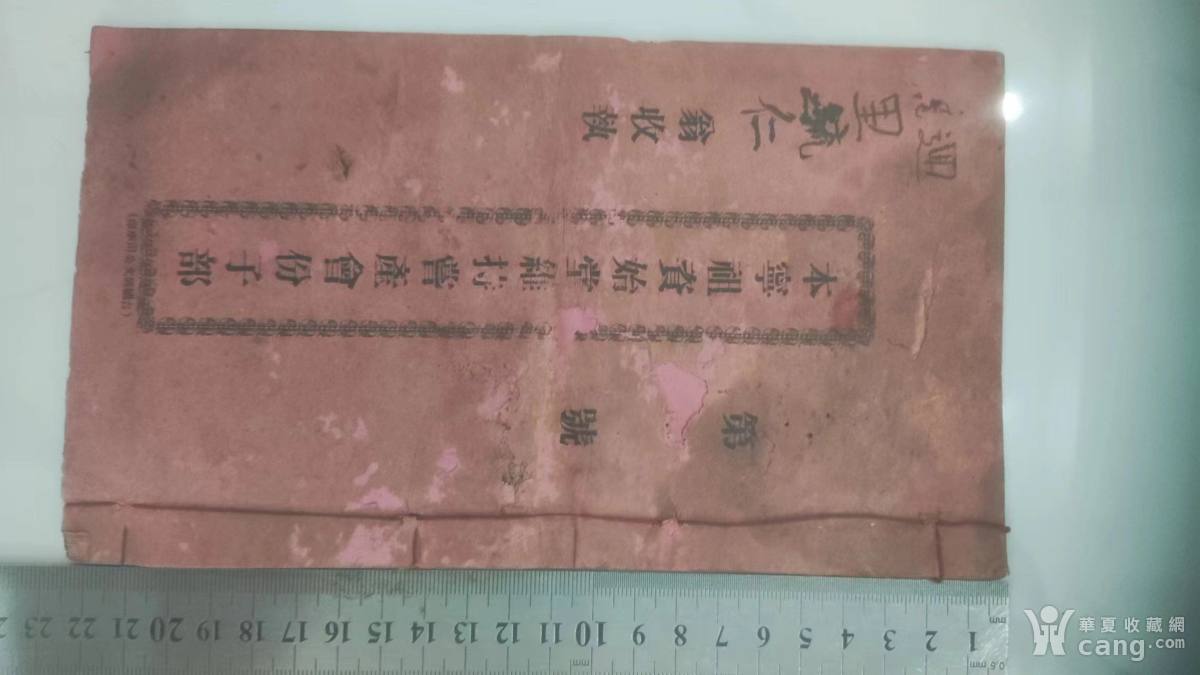 第 號
本寧祖資始堂維持嘗產會份子部
里毓仁翁收執
1 2 3 4 5 6 7 8 9 10 11 12 13 14 15 16 17 18 19 20 21 22 23
mm
0.5 mm
華夏收藏網
cang.com